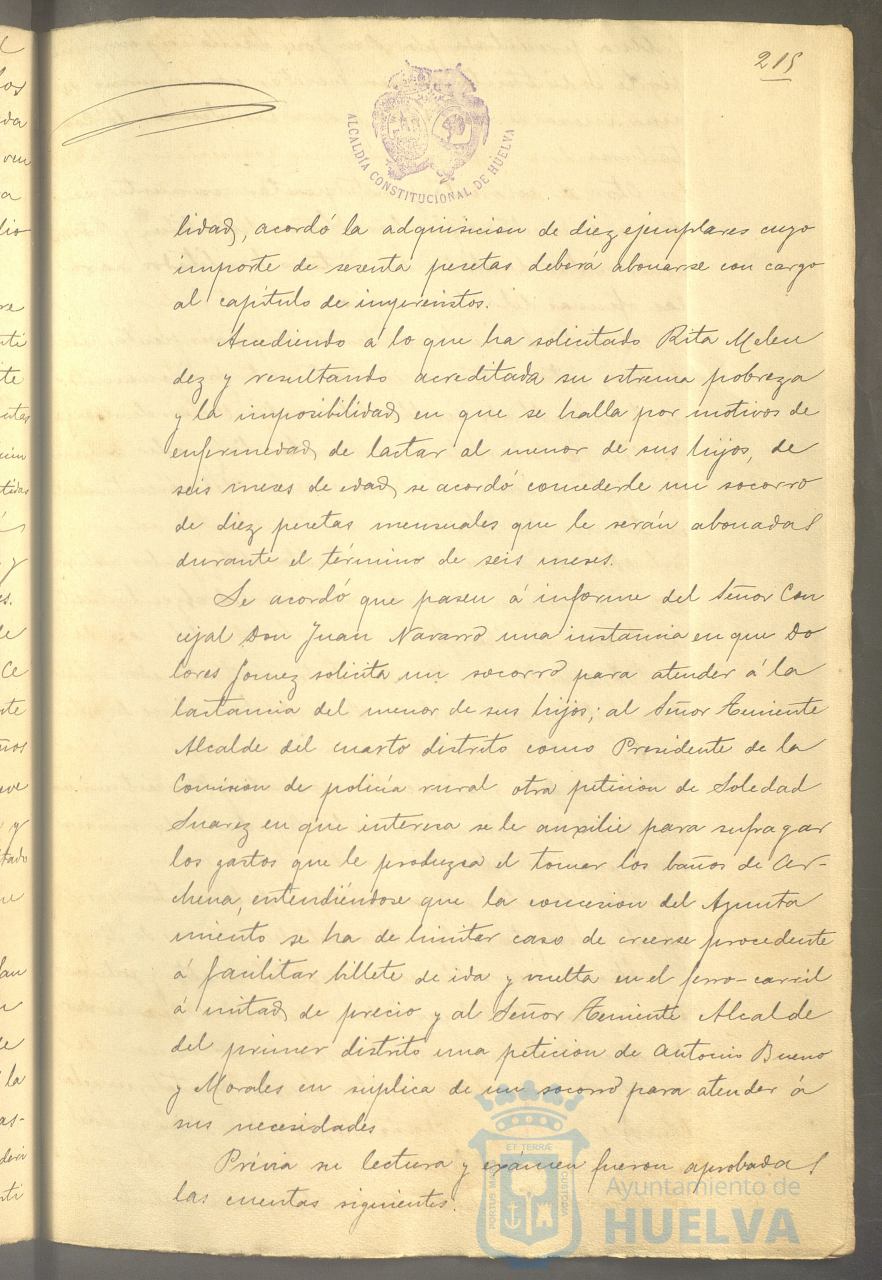 215
ALCALDÍA CONSTITUCIONAL DE HUELVA
lidad, acordó la adquisicion de diez ejemplares cuyo
importe de sesenta pesetas deberá abonarse con cargo
al capítulo de imprevistos.
Accediendo á lo que ha solicitado Rita Melen
dez y resultando acreditada su estrema pobreza
y la imposibilidad en que se halla por motivos de
enfermedad de lactar al menor de sus hijos, de
seis meses de edad se acordó concederle un socorro
de diez pesetas mensuales que le serán abonadas
durante el término de seis meses.
Se acordó que pasen á informe del Señor Con
cejal Don Juan Navarro una instancia en que Do
lores Gomez solicita un socorro para atender á la
lactancia del menor de sus hijos; al Señor Teniente
Alcalde del cuarto distrito como Presidente de la
Comision de policía rural otra peticion de Soledad
Suarez en que interesa se le auxilie para sufragar
los gastos que le produzca el tomar los baños de Ar-
chena, entendiéndose que la concesion del Ayunta
miento se ha de limitar caso de creerse procedente
á facilitar billete de ida y vuelta en el ferro-carril
á mitad de precio y al Señor Teniente Alcalde
del primer distrito una peticion de Antonio Bueno
y Morales en súplica de un socorro para atender á
sus necesidades
Prévia su lectura y exámen fueron aprobadas
las cuentas siguientes.
ET TERRÆ
PORTUS MA
CUSTODIA
Ayuntamiento de
HUELVA